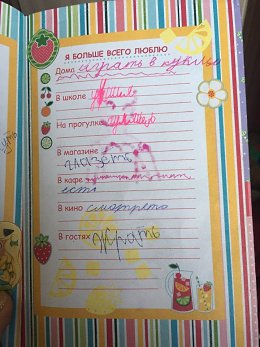 Я БОЛЬШЕ ВСЕГО ЛЮБЛЮ
Дома играть в куклы
В школе
На прогулке
В магазине
глазеть
В кафе
есть
В кино смотреть
В гостях жрать